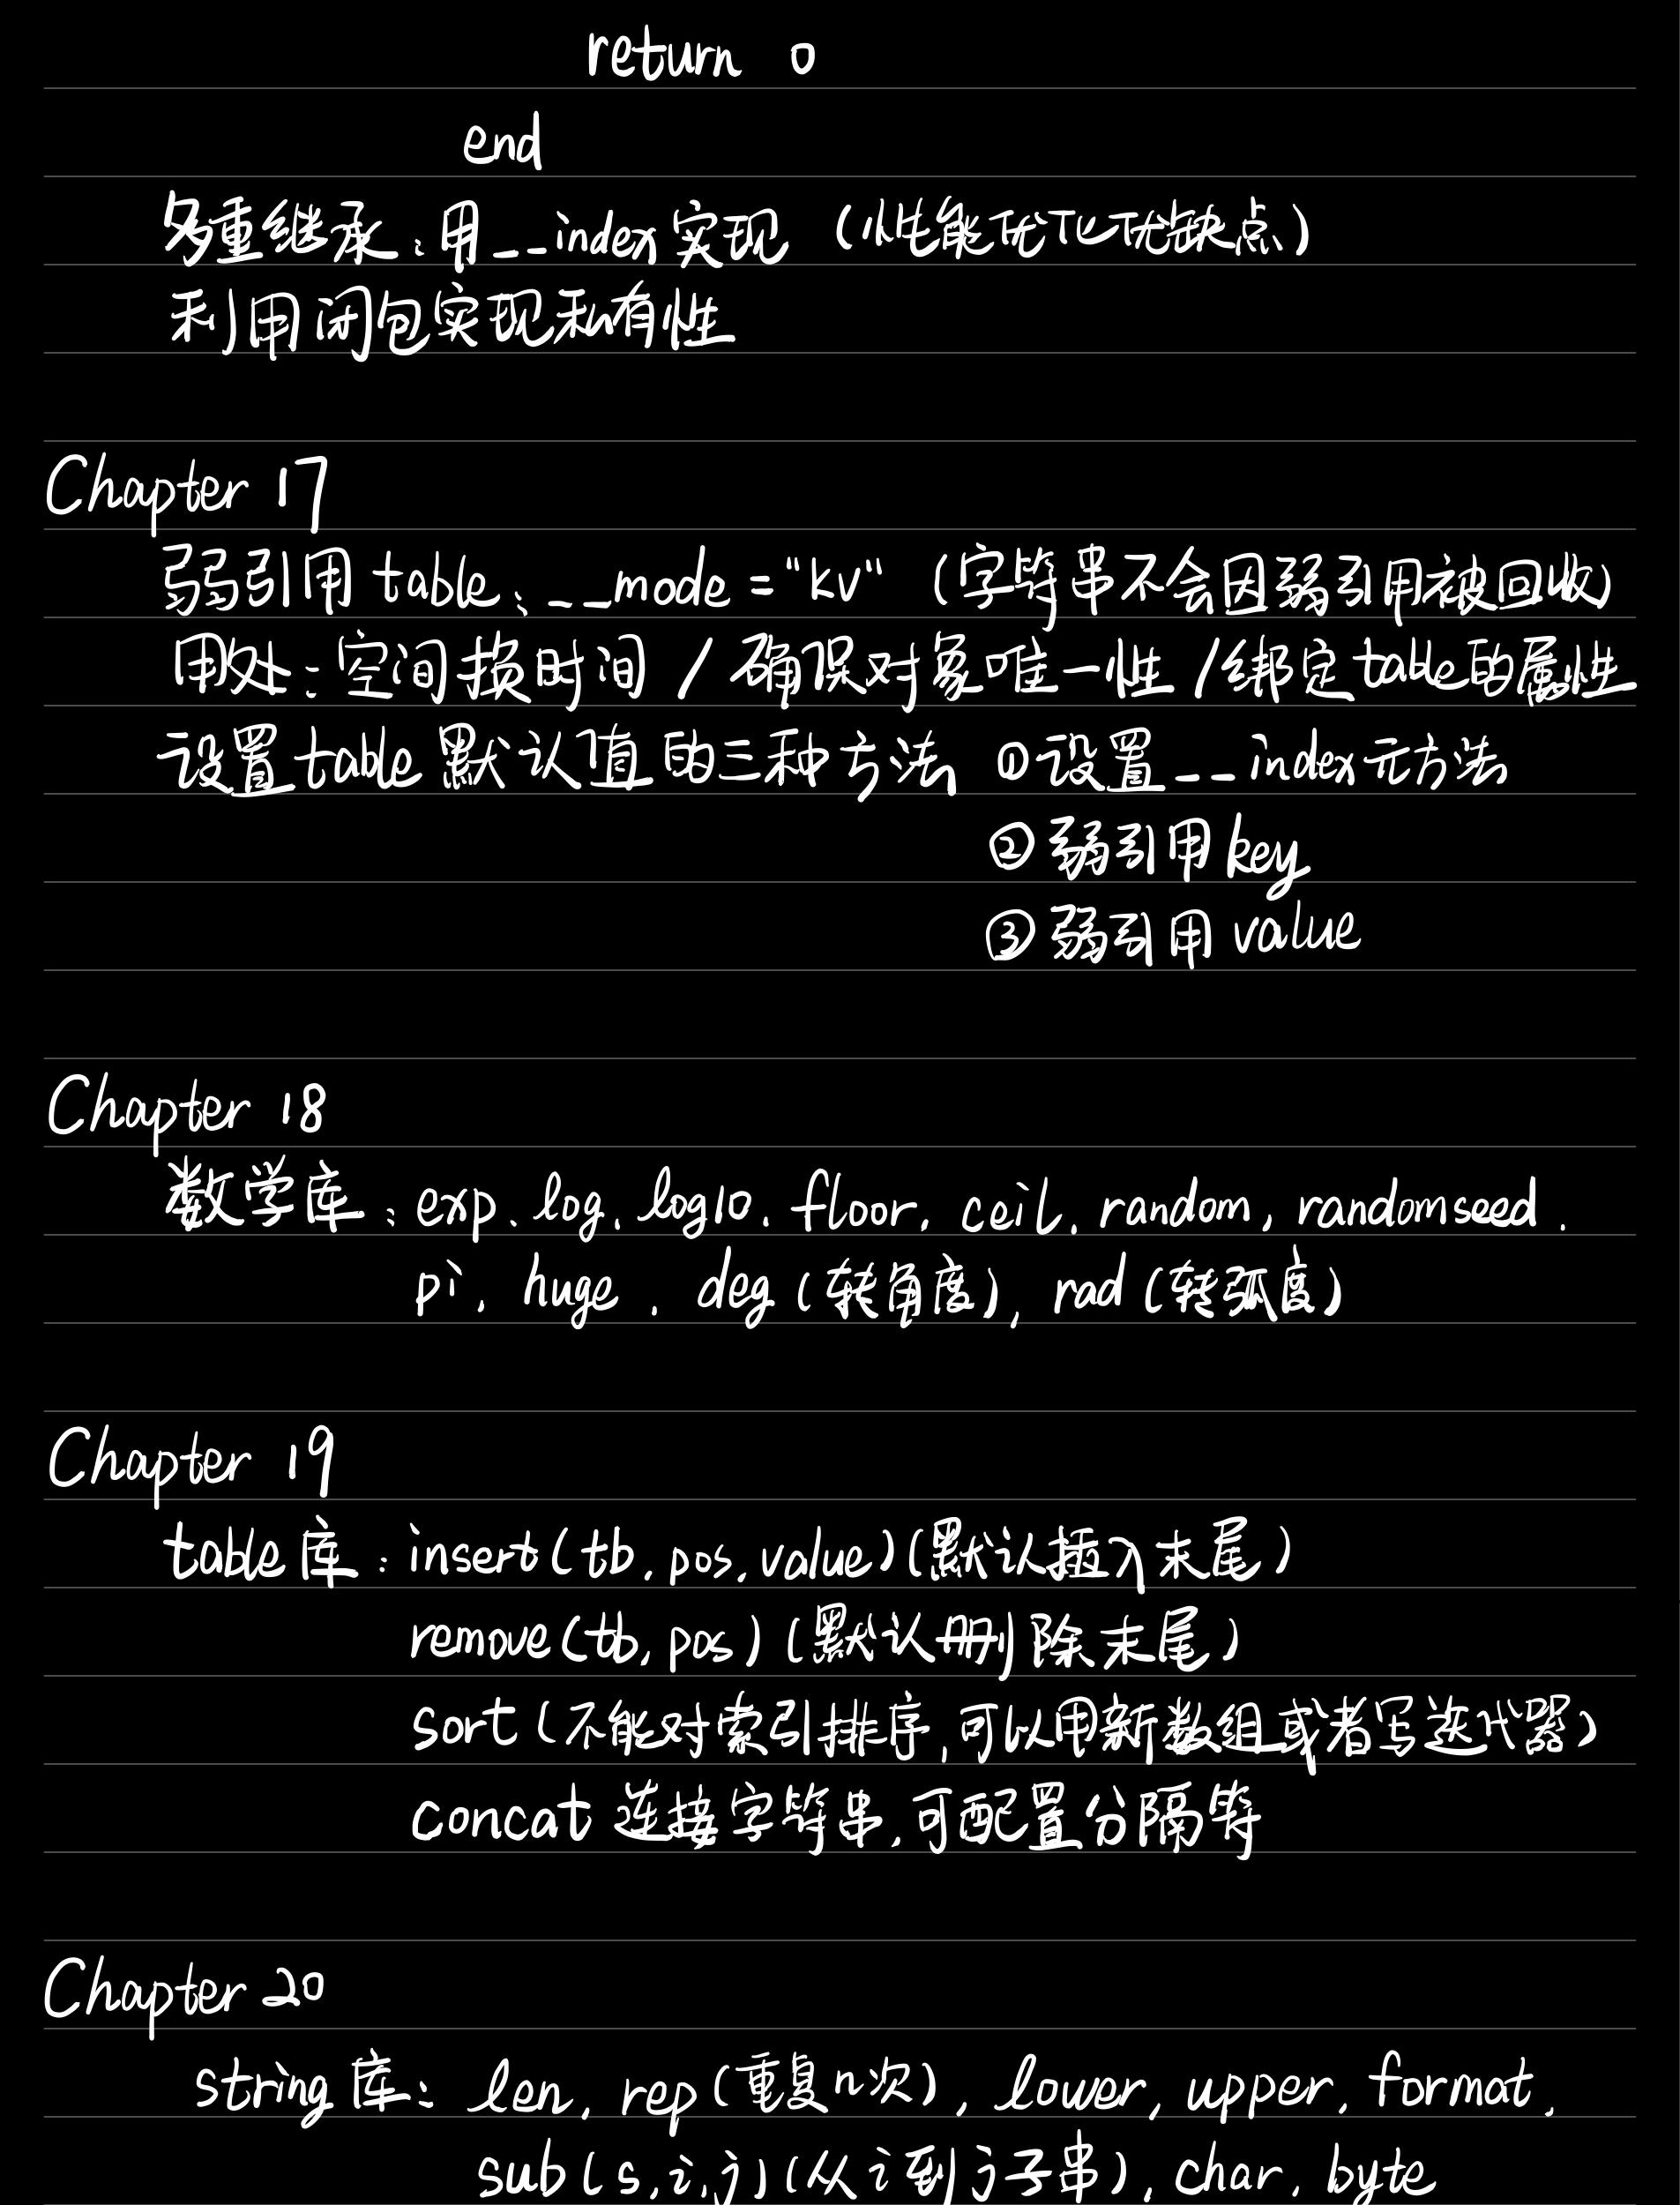 return 0
end
多重继承：用__index实现（性能优化优缺点）
利用闭包实现私有性
Chapter 17
弱引用table：__mode="kv"（字符串不会因弱引用被回收）
用处：空间损时间/确保对象唯一性/绑定table的属性
设置table默认值的三种方法 ①设置__index元方法
②弱引用key
③弱引用value
Chapter 18
数学库：exp、log、log10、floor, ceil, random, randomseed,
pi, huge, deg(转角度), rad(转弧度)
Chapter 19
table库：insert(tb, pos, value)(默认插入末尾)
remove(tb, pos)(默认删除末尾)
sort(不能对索引排序,可以用新数组或者写迭代器)
concat 连接字符串,可配置分隔符
Chapter 20
string库：len, rep(重复n次), lower, upper, format,
sub(s,i,j)(从i到j子串), char, byte